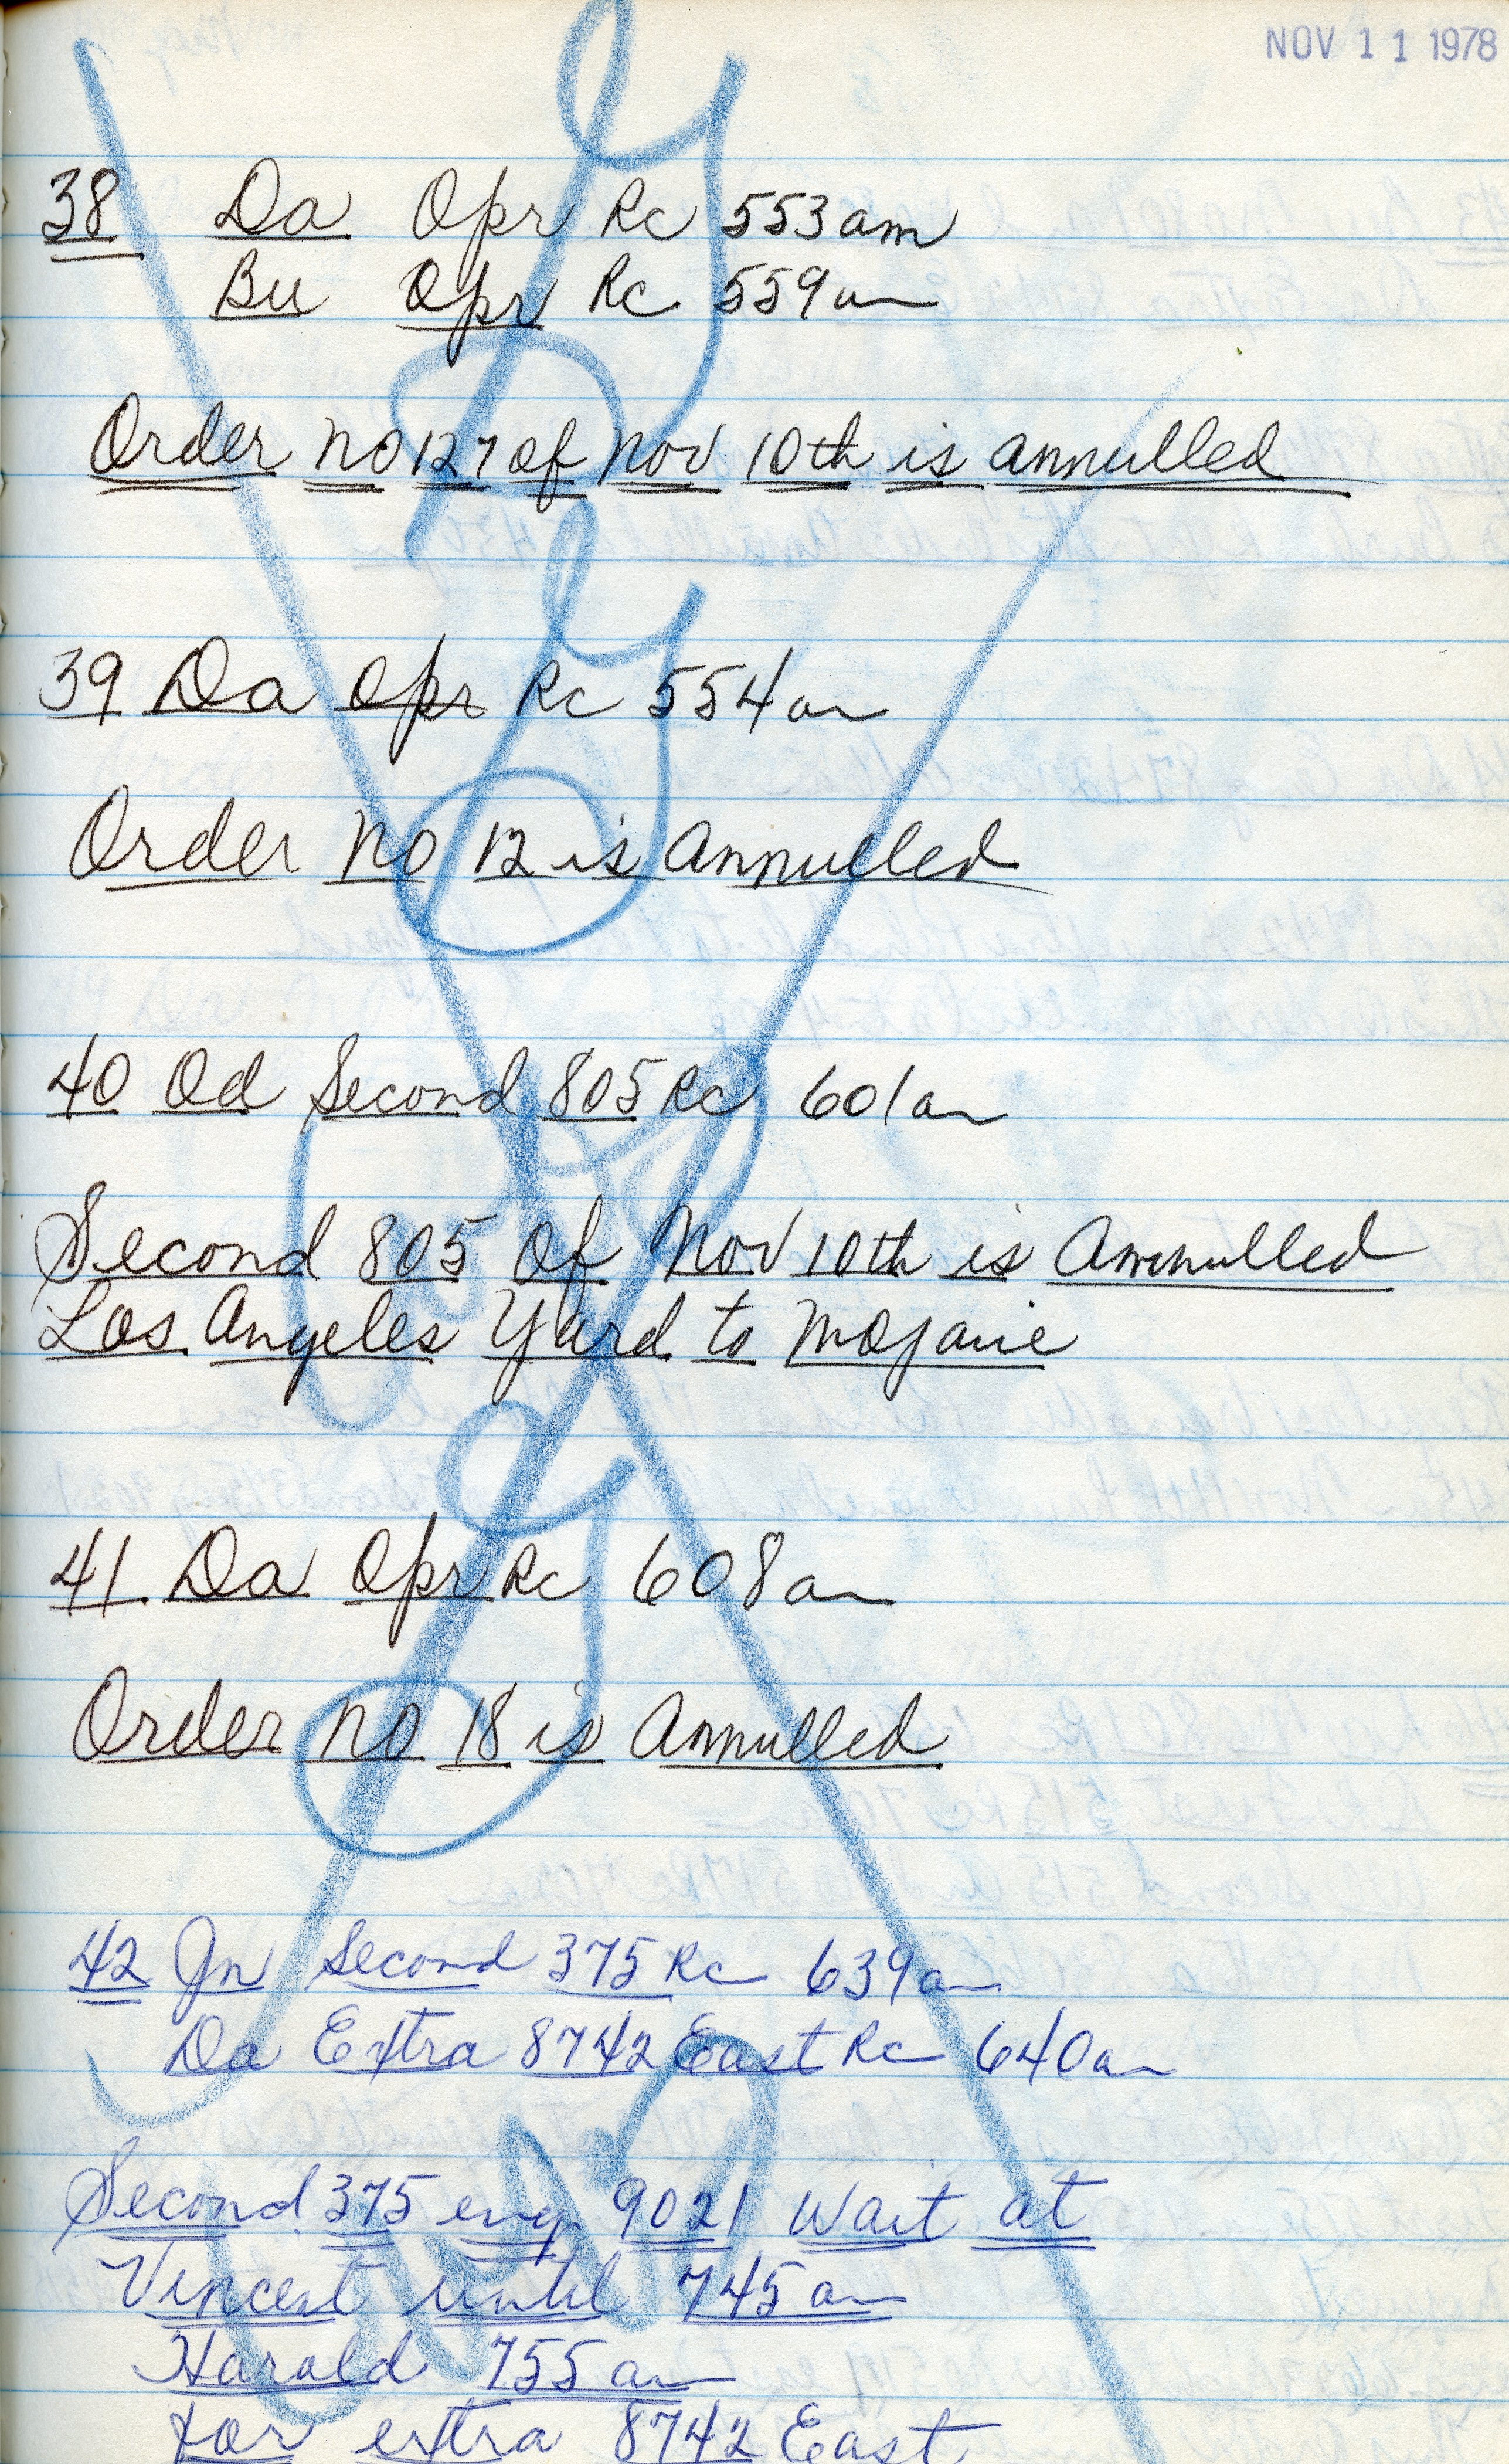 NOV 11 1978
38 Da Opr Rc 553am
Bu Opr Rc 559am
Order No 127 of Nov 10th is annulled
39 Da Opr Rc 554am
Order No 12 is Annulled
40 Od Second 805 Rc 601am
Second 805 Of Nov 10th is Annulled
Los Angeles Yard to Mojave
41 Da Opr Rc 608am
Order No 18 is Annulled
42 Jn Second 375 Rc 639am
Da Extra 8742 East Rc 640am
Second 375 eng 9021 Wait at
Vincent until 745am
Harold 755am
for extra 8742 East